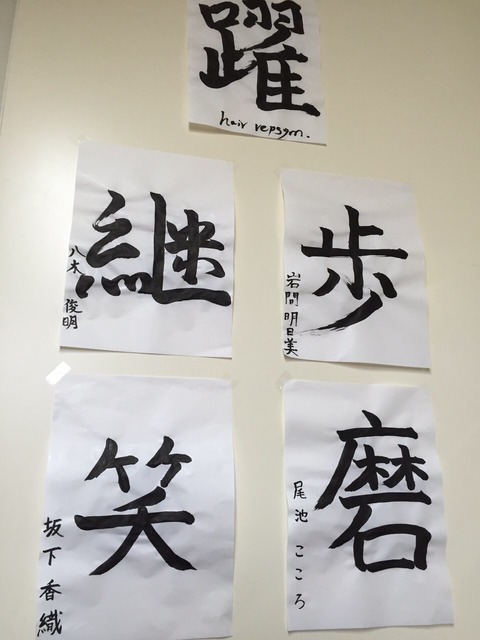 躍
hair repsgm.
継
八木 俊明
歩
岩間 明日美
笑
坂下香織
磨
尾池 こころ